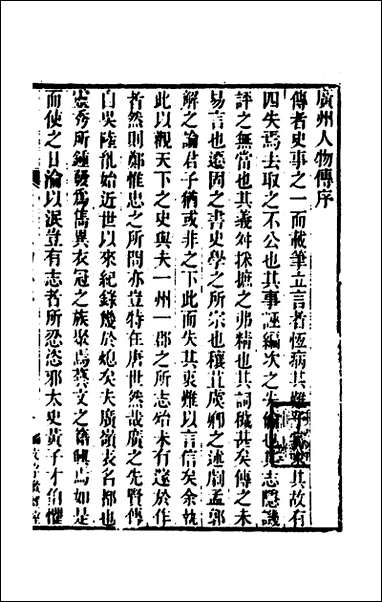 廣州人物傳序
傳者史事之一而載筆立言者恆病其難其故有
四失焉去取之不公也其事誣編次之失倫也其志隱譏
評之無當也其義舛採摭之弗精也其詞穢甚矣傳之未
易言也遷固之書史學之所宗也穰苴虞卿之述劇孟郭
解之論君子猶或非之下此而失其衷難以言信矣余執
此以觀天下之史與夫一州一郡之所志始未有遂於作
者然則鄭惟忠之所問亦豈特在唐世然哉廣之先賢傳
自吳陸胤始近世以來紀錄幾於熄矣夫廣嶺表名都也
靈秀所鍾發為儁異衣冠之族聚焉藝文之籍興焉如是
而使之日淪以泯豈有志者所忍恣邪太史黃子才伯懼